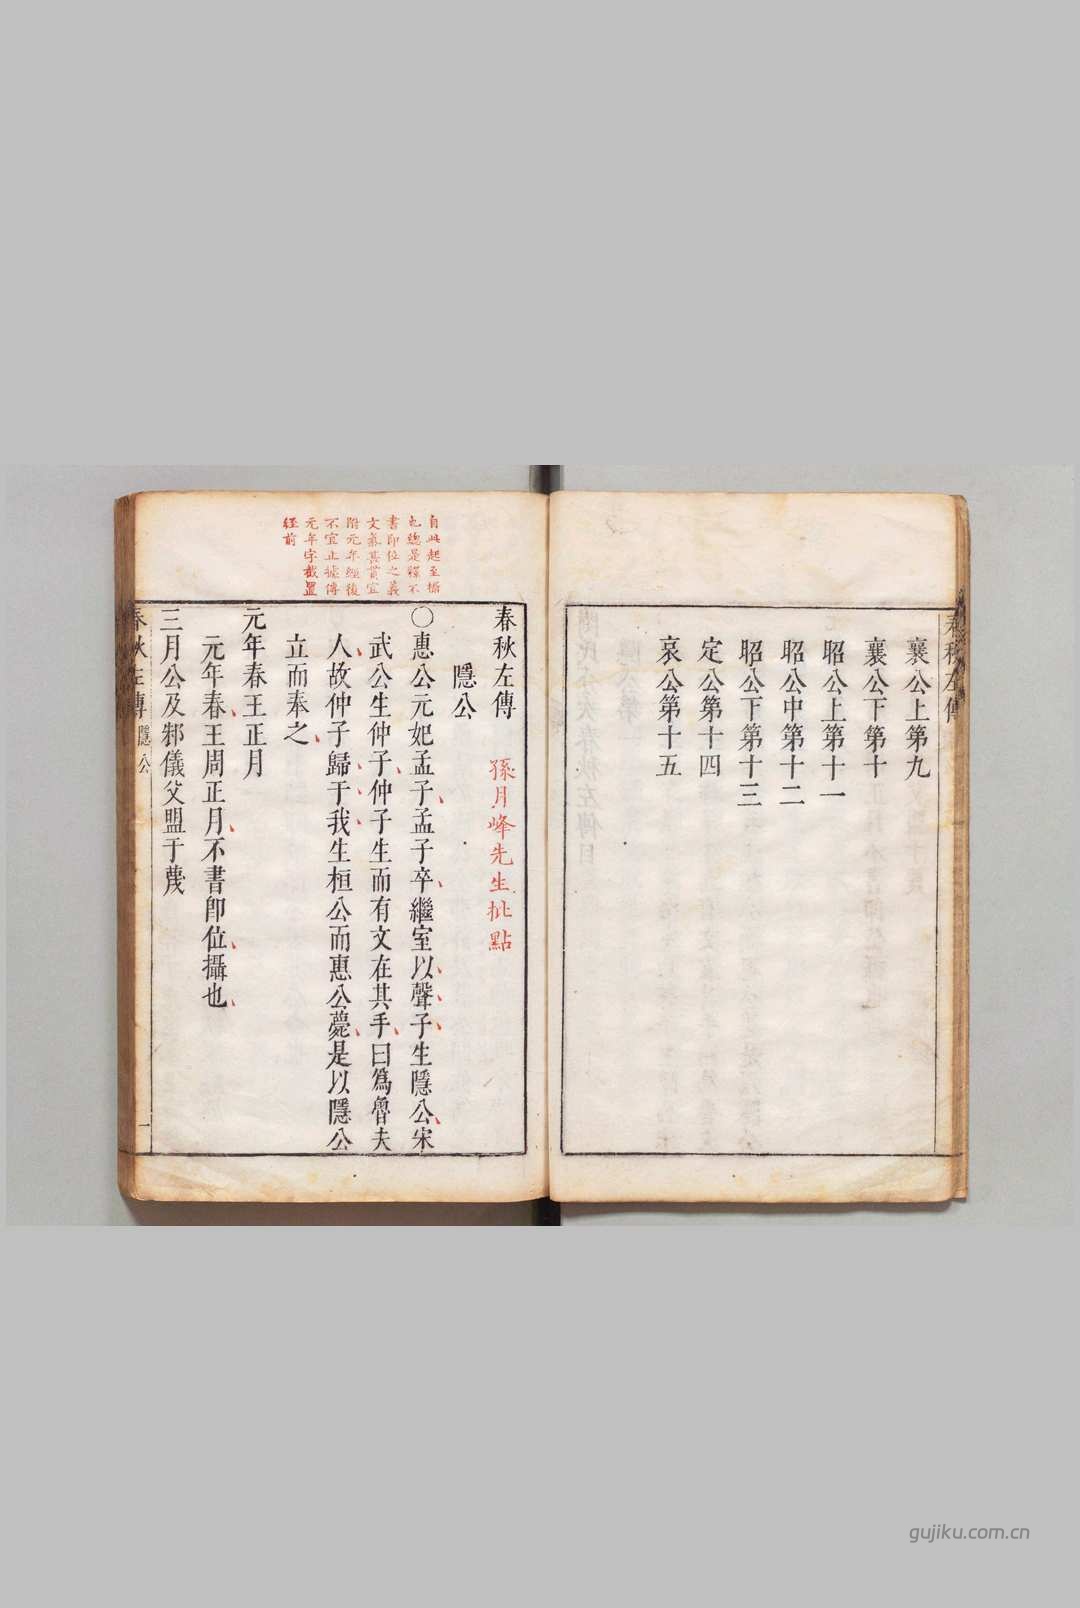 襄公上第九
襄公下第十
昭公上第十一
昭公中第十二
昭公下第十三
定公第十四
哀公第十五
春秋左傳
孫月峰先生批點
隱公
自此起至攝
也總是釋不
書卽位之義
文氣甚貫宜
附元年經後
不宜止據傳
元年字截置
經前
○惠公元妃孟子孟子卒繼室以聲子生隱公宋
武公生仲子仲子生而有文在其手曰爲魯夫
人故仲子歸于我生桓公而惠公薨是以隱公
立而奉之
元年春王正月
元年春王周正月不書卽位攝也
三月公及邾儀父盟于蔑
春秋左傳 隱公 一
gujiku.com.cn